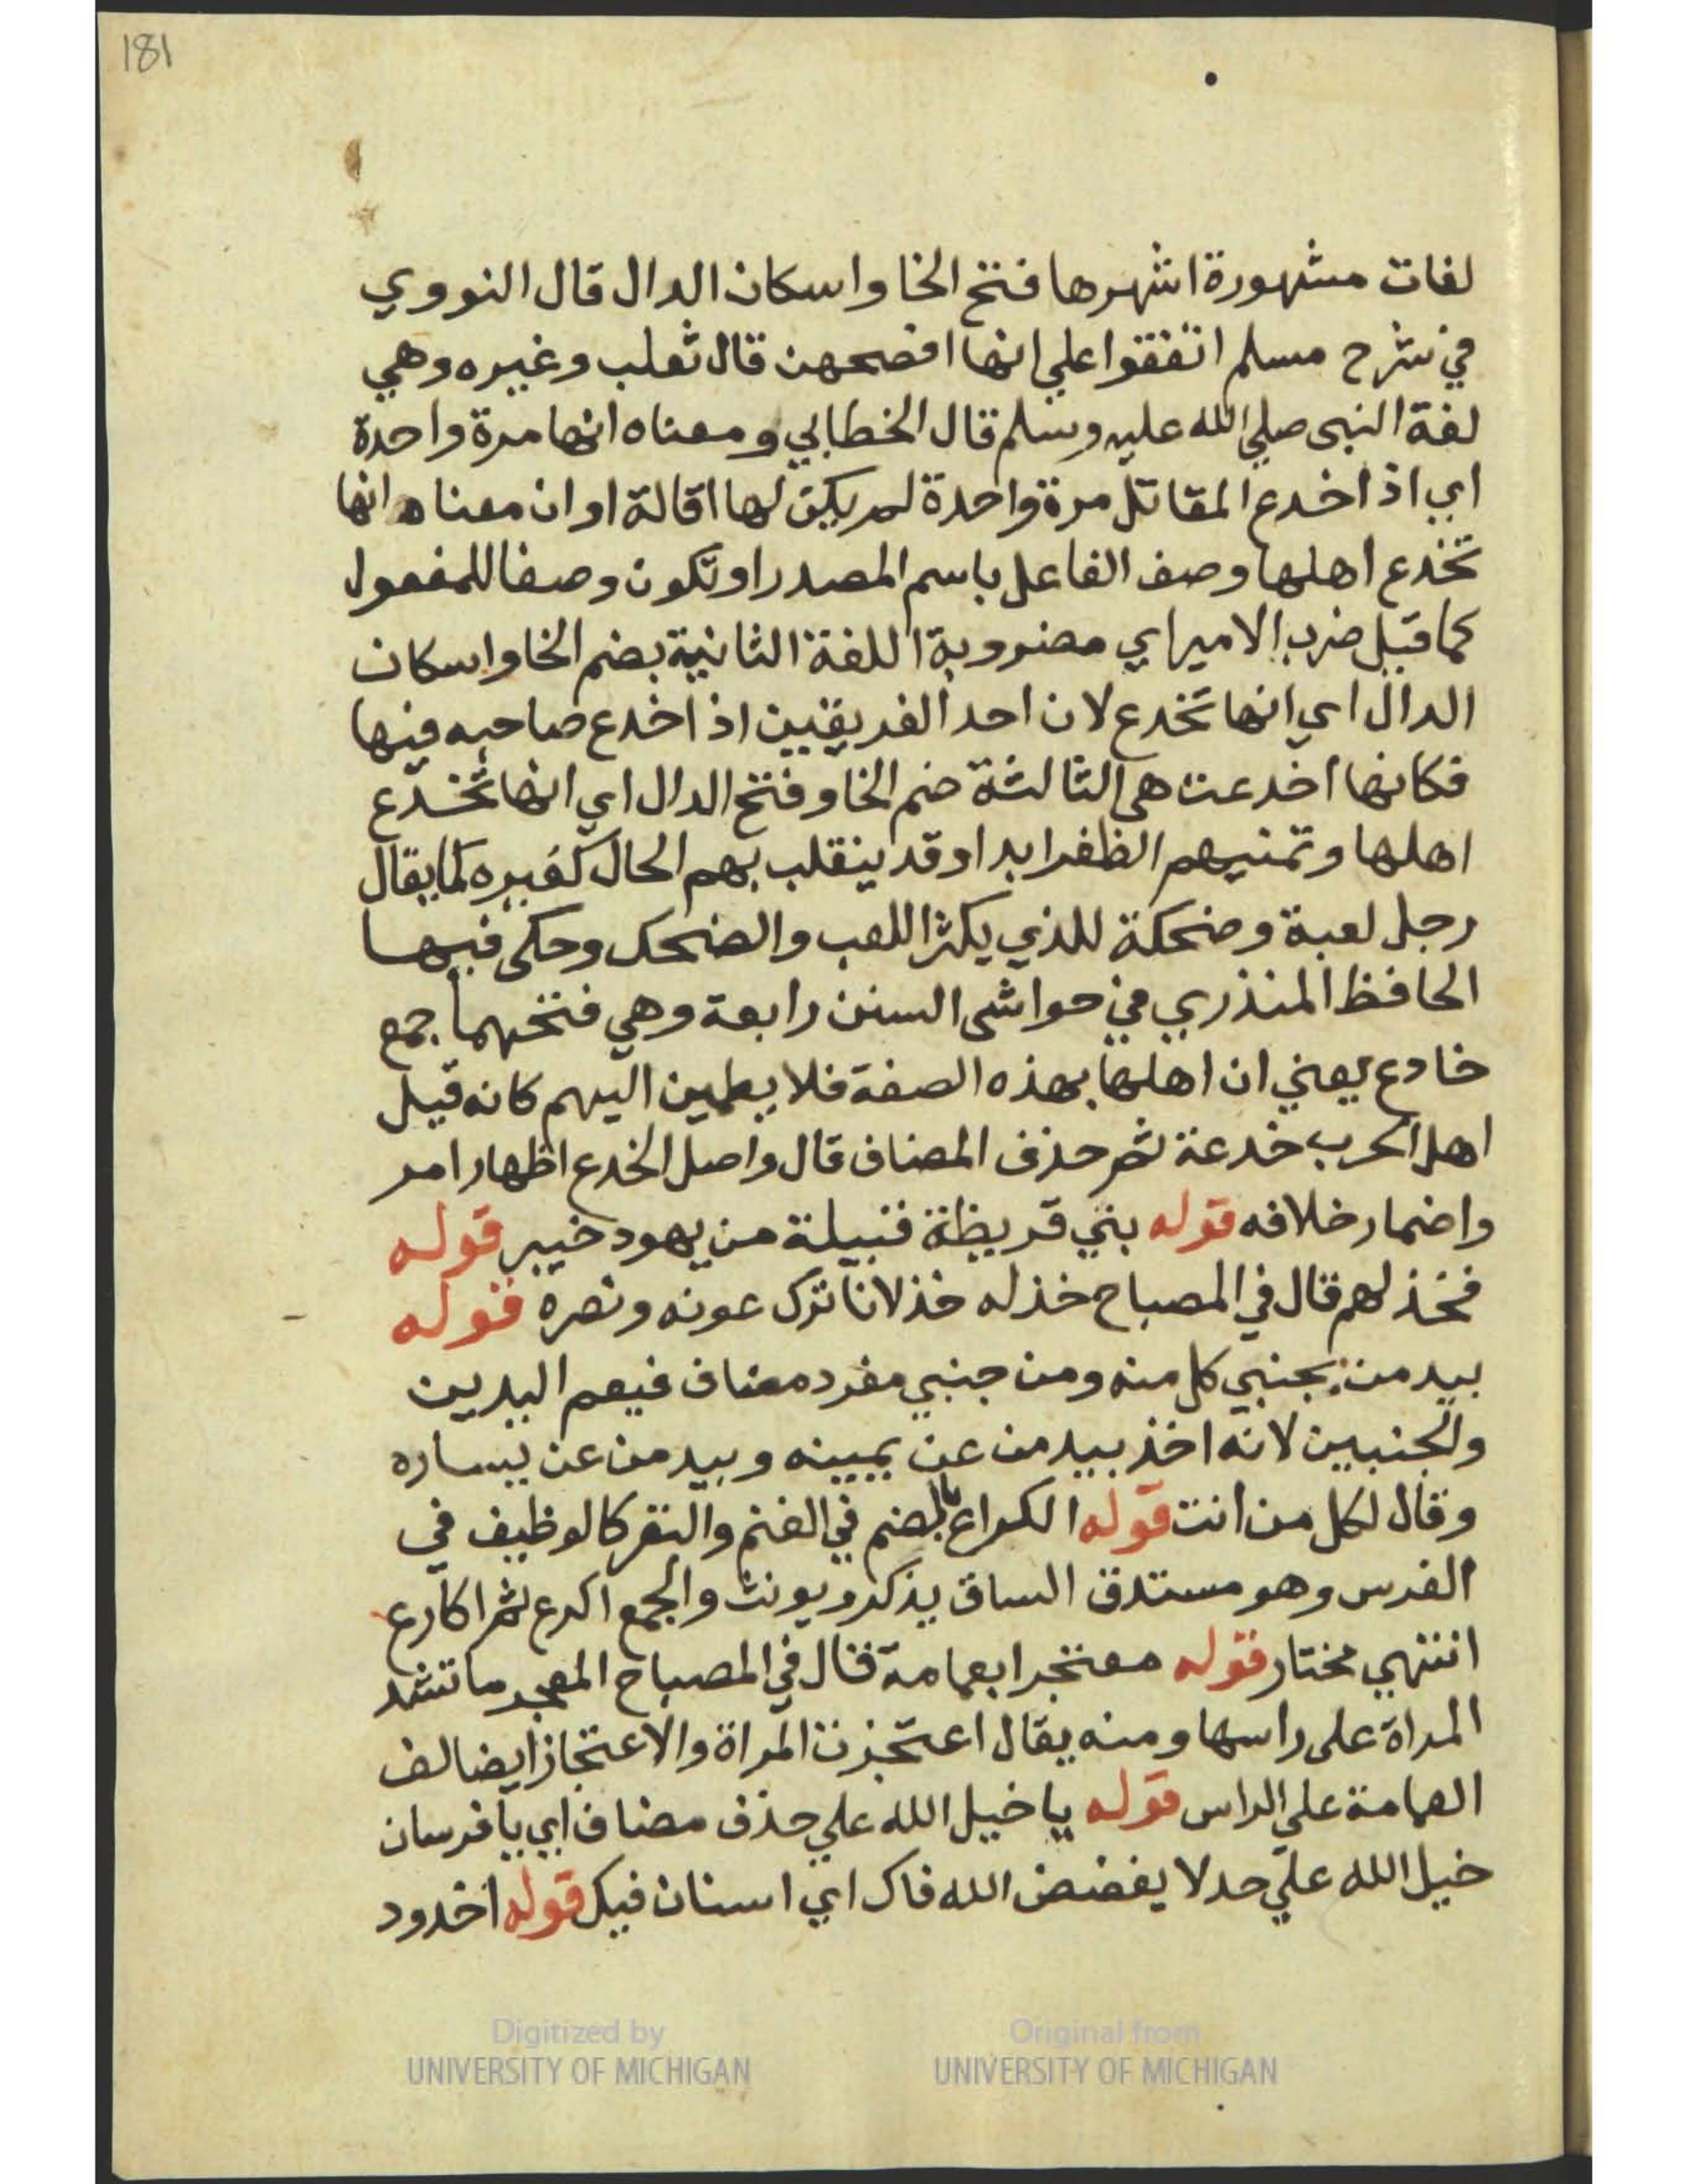 181
لغات مشهورة اشهرها فتح الخا واسكان الدال قال النووي
في شرح مسلم اتفقوا علي انها افصحهن قال ثعلب وغيره وهي
لغة النبى صلي الله عليه وسلم قال الخطابي ومعناه انها مرة واحدة
اي اذا خدع المقاتل مرة واحدة لم يكن لها اقالة او ان معناه انها
تخدع اهلها وصف الفاعل باسم المصدر او تكون وصفا للمفعول
كما قيل ضرب الامير اي مضروبة اللغة الثانية بضم الخا واسكان
الدال اي انها تخدع لان احد الفريقين اذا خدع صاحبه فيها
فكانها اخدعت هى الثالثة ضم الخا وفتح الدال اي انها تخدع
اهلها وتمنيهم الظفر ابدا وقد ينقلب بهم الحال كغيره كما يقال
رجل لعبة وضحكة للذي يكثر اللعب والضحك وحكى فيها
الحافظ المنذري في حواشى السنن رابعة وهي فتحهما جمع
خادع يعني ان اهلها بهذه الصفة فلا يطمين اليهم كانه قيل
اهل الحرب خدعة ثم حذف المضاف قال واصل الخدع اظهار امر
واضمار خلافه قوله بني قريظة قبيلة من يهود خيبر قوله
فخذلهم قال في المصباح خذله خذلانا ترك عونه ونصره قوله
بيد من بجنبي كل منه ومن جنبي مفرد مضاف فيعم اليدين
والجنبين لانه اخذ بيد من عن يمينه وبيد من عن يساره
وقال لكل من انت قوله الكراع بالضم في الغنم والبقر كالوظيف في
الفرس وهو مستدق الساق يذكر ويونث والجمع اكرع ثم اكارع
انتهي مختار قوله معتجرا بعمامة قال في المصباح المعجر ما تشد
المراة على راسها ومنه يقال اعتجزت المراة والاعتجاز ايضا لف
العمامة علي الراس قوله يا خيل الله علي حذف مضاف اي يا فرسان
خيل الله علي حد لا يفضض الله فاك اي اسنان فيك قوله اخدود
Digitized by
UNIVERSITY OF MICHIGAN
Original from
UNIVERSITY OF MICHIGAN